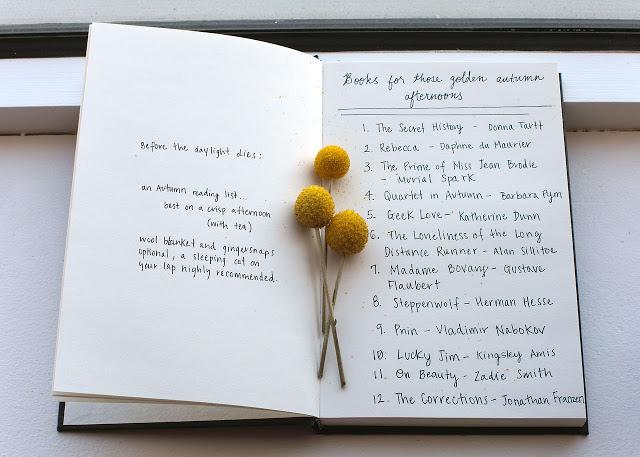 Before the daylight dies:
an Autumn reading list...
best on a crisp afternoon
(with tea)
wool blanket and gingersnaps
optional, a sleeping cat on
your lap highly recommended.
Books for those golden autumn
afternoons
1. The Secret History - Donna Tartt
2. Rebecca - Daphne du Maurier
3. The Prime of Miss Jean Brodie
- Murial Spark
4. Quartet in Autumn - Barbara Pym
5. Geek Love - Katherine Dunn
6. The Loneliness of the Long
Distance Runner - Alan Sillitoe
7. Madame Bovary - Gustave
Flaubert
8. Steppenwolf - Herman Hesse
9. Pnin - Vladimir Nabokov
10. Lucky Jim - Kingsley Amis
11. On Beauty - Zadie Smith
12. The Corrections - Jonathan Franzen